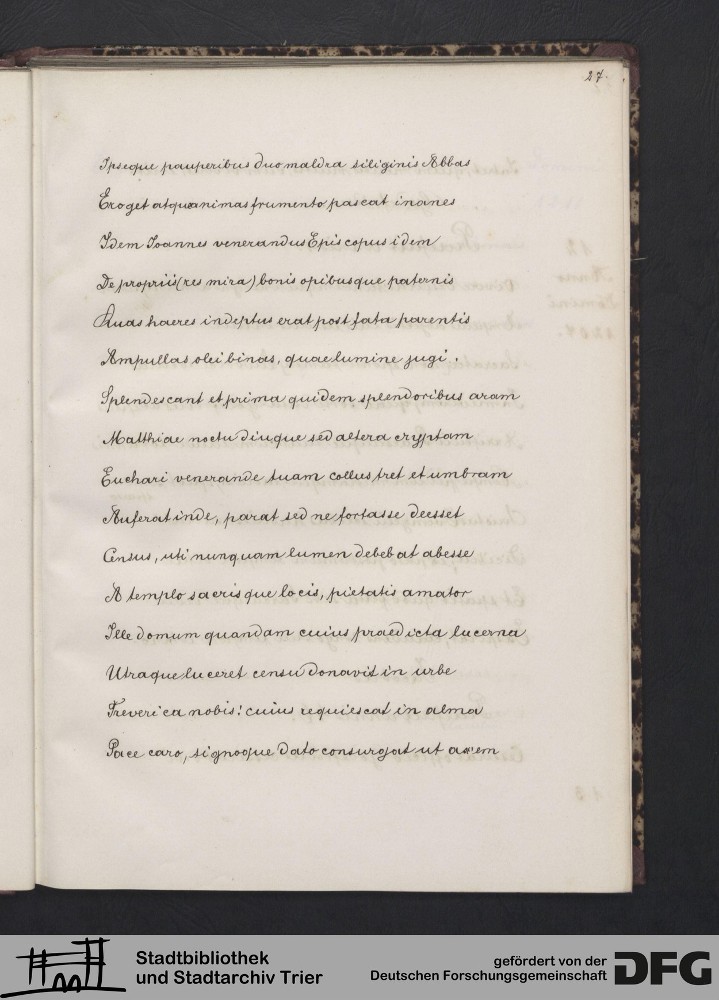 27.
Ipseque pauperibus duo maldra siliginis Abbas
Eroget atque animas frumento pascat inanes
Idem Joannes venerandus Episcopus idem
De propriis (res mira) bonis opibusque paternis
Quas haeres indeptus erat post fata parentis
Ampullas olei binas, quae lumine jugi.
Splendescant et prima quidem splendoribus aram
Matthiae noctu diuque sed altera cryptam
Euchari venerande tuam collustret et umbram
Auferat inde, parat sed ne fortasse deesset
Census, uti nunquam lumen debebat abesse
A templo sacrisque locis, pietatis amator
Ille domum quandam cuius praedicta lucerna
Utraque luceret censu donavit in urbe
Treverica nobis! cuius requiescat in alma
Pace caro, signoque dato consurgat ut axem
Stadtbibliothek
und Stadtarchiv Trier
gefördert von der
Deutschen Forschungsgemeinschaft
DFG